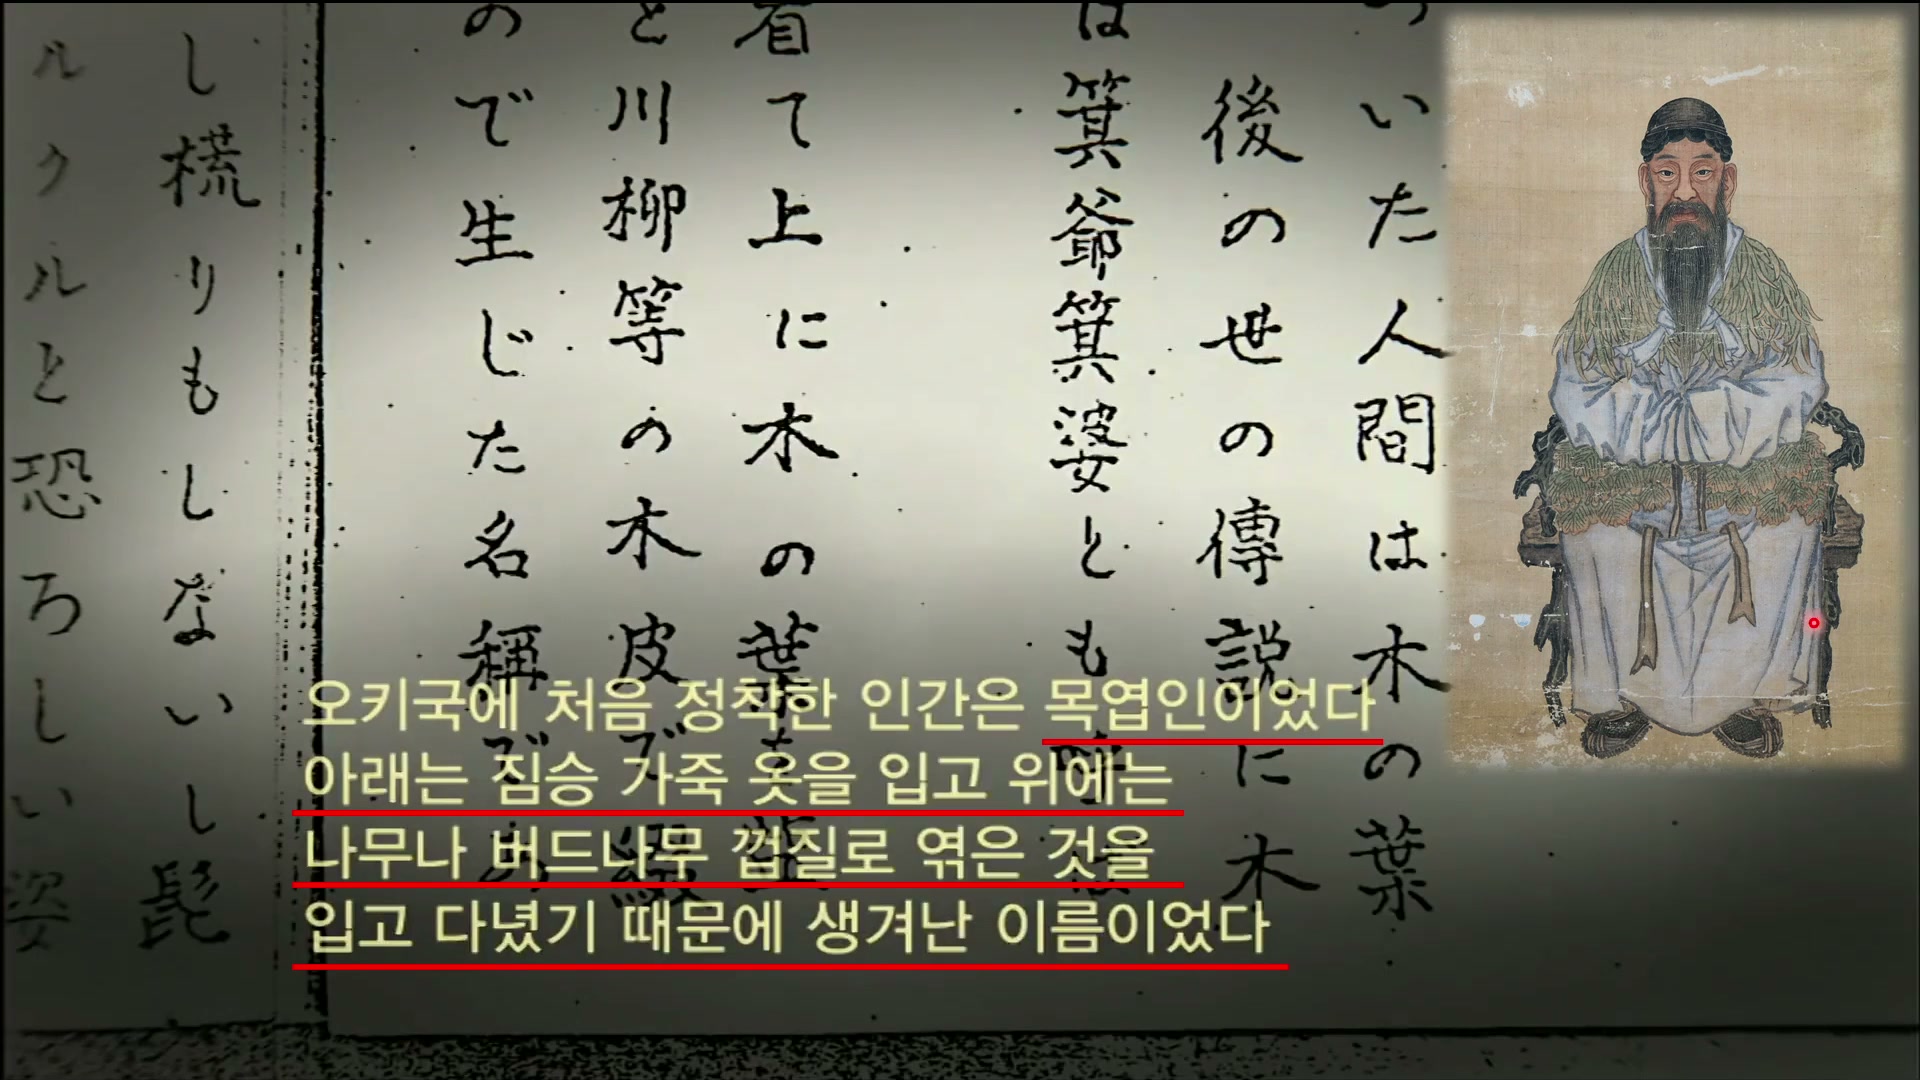 いた人間は木の葉
後の世の傳説に木
は箕爺箕婆とも
て上に木の葉
と川柳等の木皮で綴
ので生じた名稱で
し梳りもしないし髭
ルクルと恐ろしい姿
오키국에 처음 정착한 인간은 목엽인이었다
아래는 짐승 가죽 옷을 입고 위에는
나무나 버드나무 껍질로 엮은 것을
입고 다녔기 때문에 생겨난 이름이었다